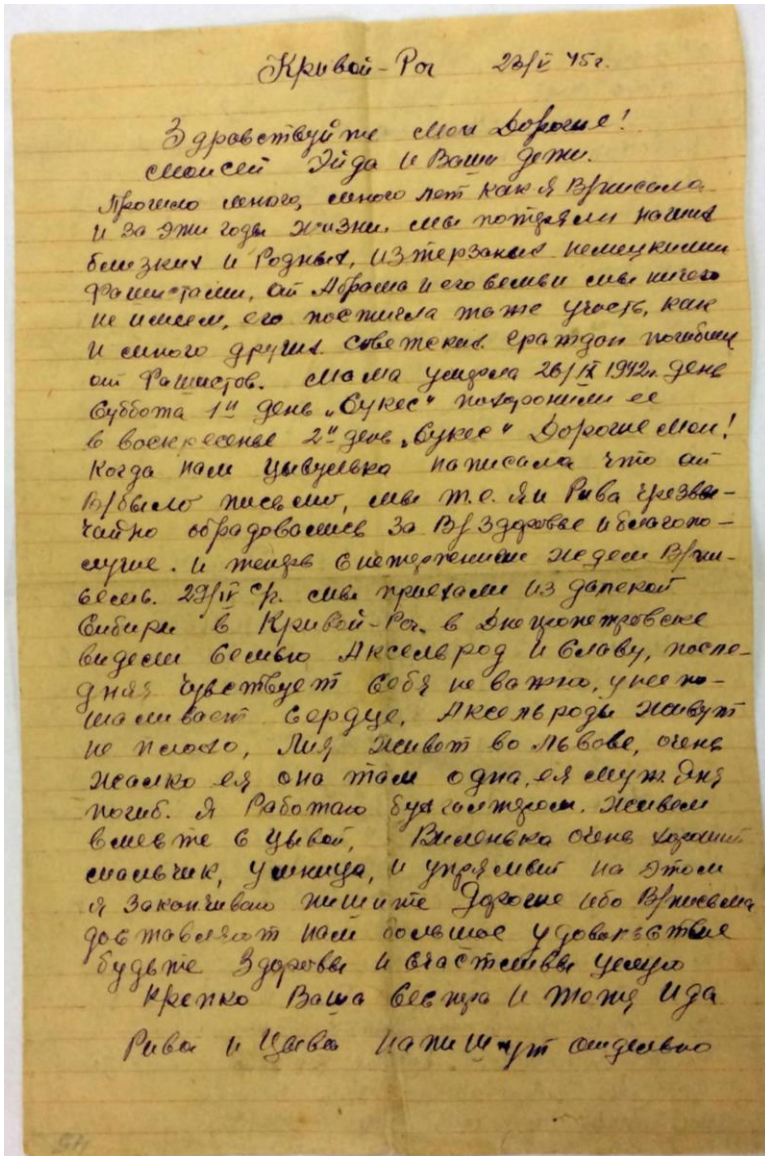 Кривой-Рог 23/V 45г.
Здравствуйте мои Дорогие!
Моисей Эйда и Ваши дети.
Прошло много, много лет как я В/писала
и за эти годы жизни мы потеряли наших
близких и Родных, изтерзаных немецкими
Фашистами, от Абраша и его семьи мы ничего
не имеем, его постигла таже участь, как
и много других советских граждан погибших
от Фашистов. Мама умерла 26/IX 1942г. день
Суббота 1й день „Сукес" похоронили ее
в воскресенье 2й день „Сукес" Дорогие мои!
Когда нам Цывулька написала что от
В/было письмо, мы т.е. я и Рива чрезвы-
чайно обрадовались за В/Здоровье и благопо-
лучие. и теперь с нетерпением ждем В/пи-
сем. 29/IV с/г. мы приехали из далекой
Сибири в Кривой-Рог. в Днепропетровске
видели Семью Аксельрод и Славу, после-
дняя чувствует себя не важно, у нее по-
шаливает Сердце, Аксельроды живут
не плохо, Лия живет во Львове, очень
жалко ея она там одна, ея муж
погиб. Я Работаю бухгалтером. Живем
вместе с Цывой, Виленька очень хороший
мальчик, умница, и упрямый на этом
я Заканчиваю пишите Дорогие ибо В/письма
доставляют нам большое удовольствие
будьте Здоровы и счастливы целую
Крепко Ваша Сестра и тетя Ида
Рива и Цыва напишут отдельно